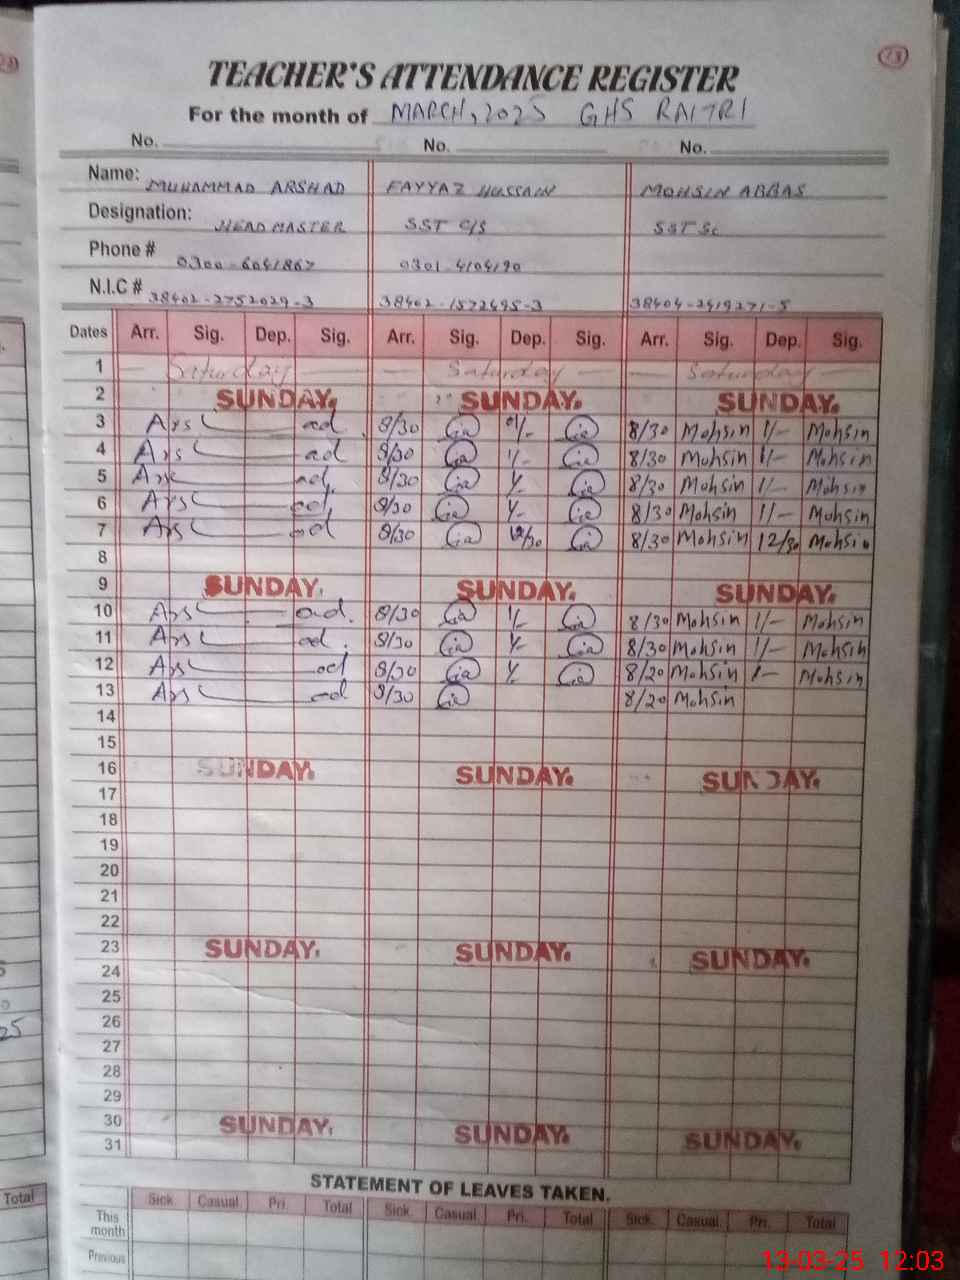 23
TEACHER'S ATTENDANCE REGISTER
For the month of MARCH, 2025 GHS RAITRI
No. No. No.
Name: MUHAMMAD ARSHAD FAYYAZ HUSSAIN MOHSIN ABBAS
Designation: HEAD MASTER SST C/S SST Sc
Phone # 0300-6041867 0301-4104190
N.I.C # 38402-2752029-3 38402-1572495-3 38404-2419271-5
Dates Arr. Sig. Dep. Sig. Arr. Sig. Dep. Sig. Arr. Sig. Dep. Sig.
1 — Saturday — — Saturday — — Saturday —
2 SUNDAY. SUNDAY. SUNDAY.
3 Ars ad 8/30 1/- 8/30 Mohsin 1/- Mohsin
4 Ars ad 8/30 1/- 8/30 Mohsin 1/- Mohsin
5 Ars ad. 8/30 1/- 8/30 Mohsin 1/- Mohsin
6 Ars ad. 8/30 1/- 8/30 Mohsin 1/- Mohsin
7 Ars ad 8/30 12/30 8/30 Mohsin 12/30 Mohsin
8
9 SUNDAY. SUNDAY. SUNDAY.
10 Ars ad. 8/30 1/- 8/30 Mohsin 1/- Mohsin
11 Ars ad. 8/30 1/- 8/30 Mohsin 1/- Mohsin
12 Ars ad 8/30 1/- 8/20 Mohsin 1- Mohsin
13 Ars ad 8/30 8/20 Mohsin
14
15
16 SUNDAY. SUNDAY. SUNDAY.
17
18
19
20
21
22
23 SUNDAY. SUNDAY. SUNDAY.
24
25
26
27
28
29
30 SUNDAY. SUNDAY. SUNDAY.
31
STATEMENT OF LEAVES TAKEN.
Sick. Casual. Pri. Total Sick. Casual. Pri. Total Sick. Casual. Pri. Total
Total This month
Previous
13-03-25 12:03